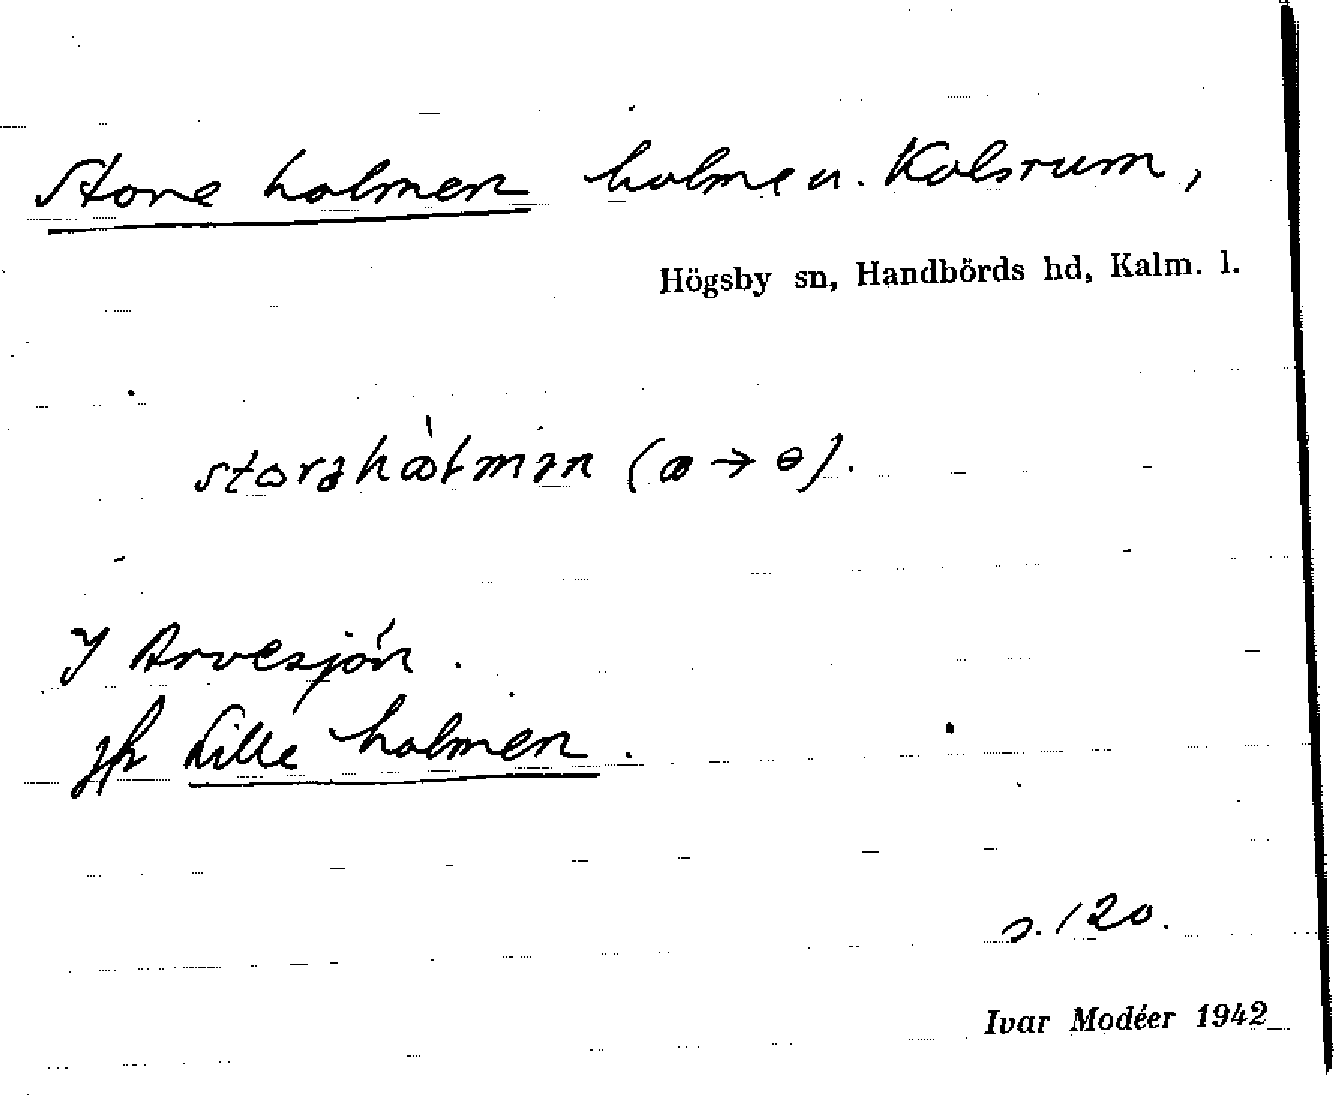 Store holmen holme u. Kolsrum,
Högsby sn, Handbörds hd, Kalm. l.
(→ ɵ).
I Arvesjön.
jfr Lille holmen.
s. 120.
Ivar Modéer 1942